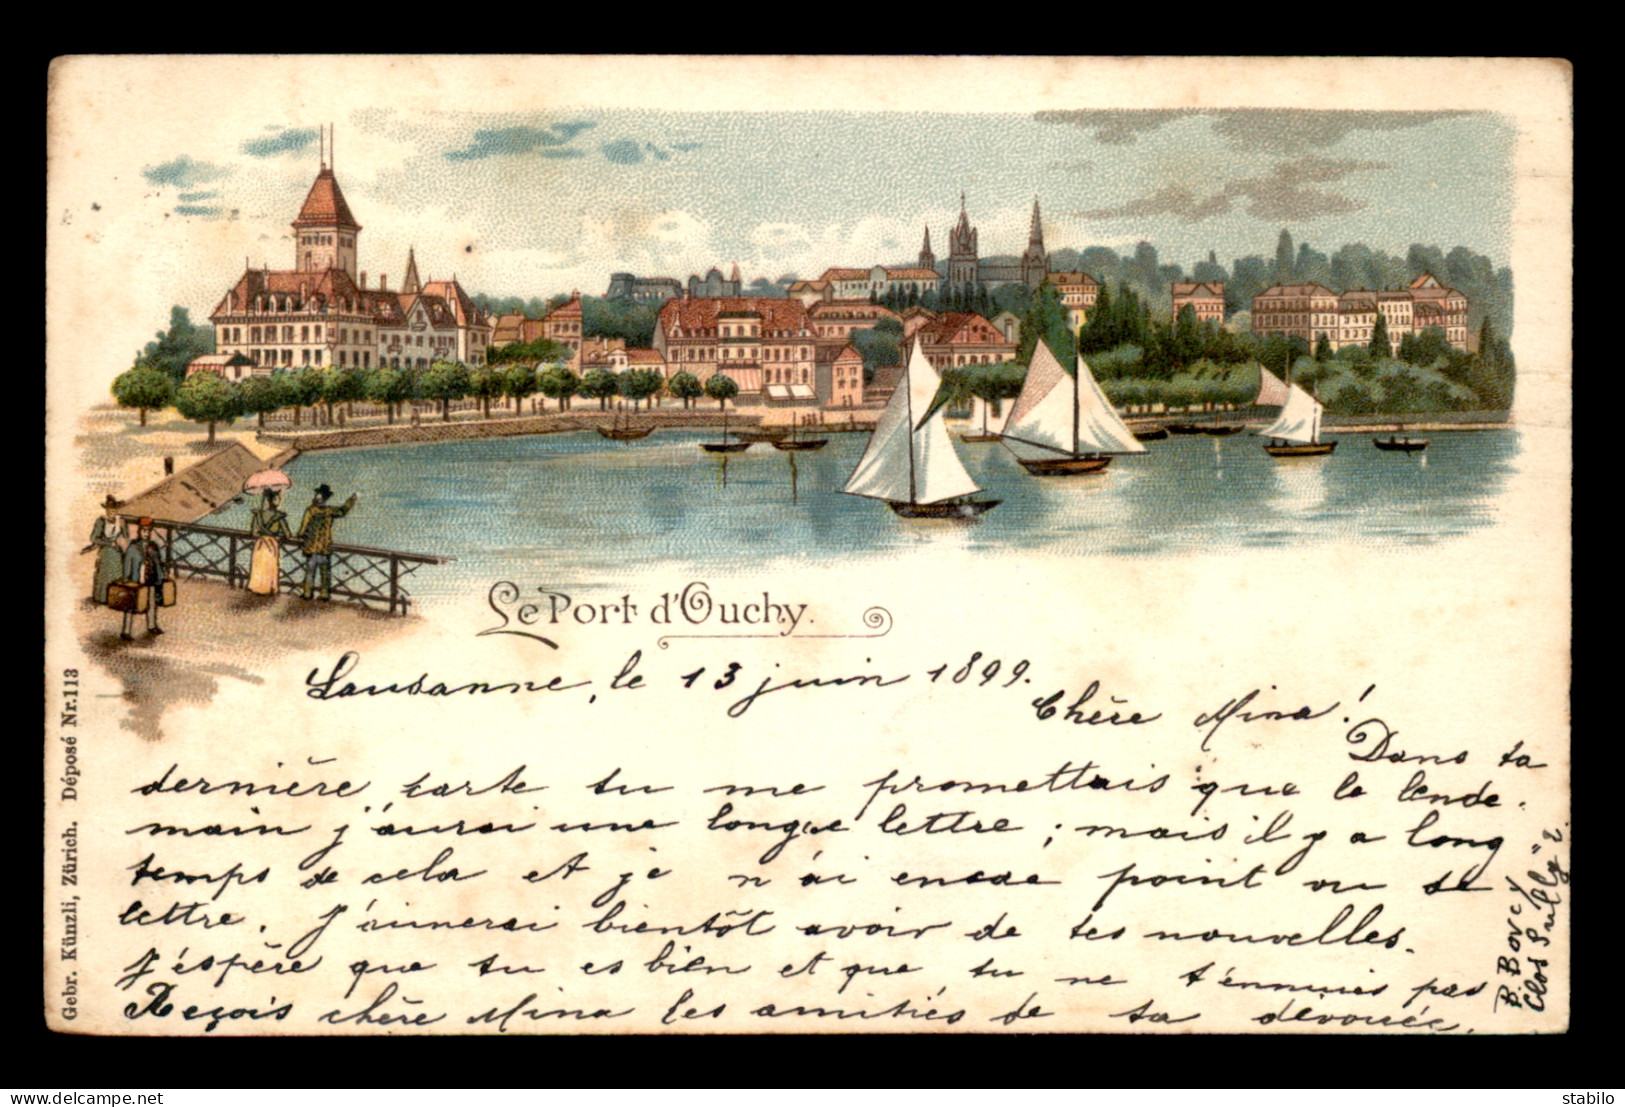 Le Port d'Ouchy.
Lausanne, le 13 juin 1899.
Chère Mina!
Dans ta
dernière carte tu me promettais que le lende-
main j'aurai une longue lettre; mais il y a long
temps de cela et je n'ai encore point vu de
lettre. J'aimerai bientôt avoir de tes nouvelles.
J'éspère que tu es bien et que tu ne t'ennuies pas
Reçois chère Mina les amitiés de ta dévouée.
B. Bovey
Clos Pully" 2.
Gebr. Künzli, Zürich. Déposé Nr. 113
delcampe.net
stabilo